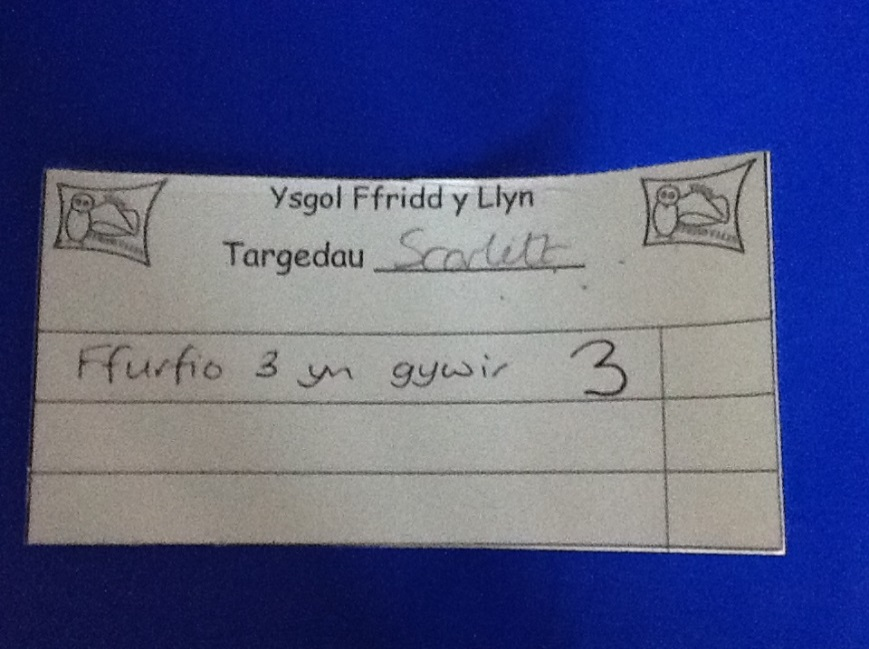 Ysgol Ffridd y Llyn
Targedau Scarlett
Ffurfio 3 yn gywir 3